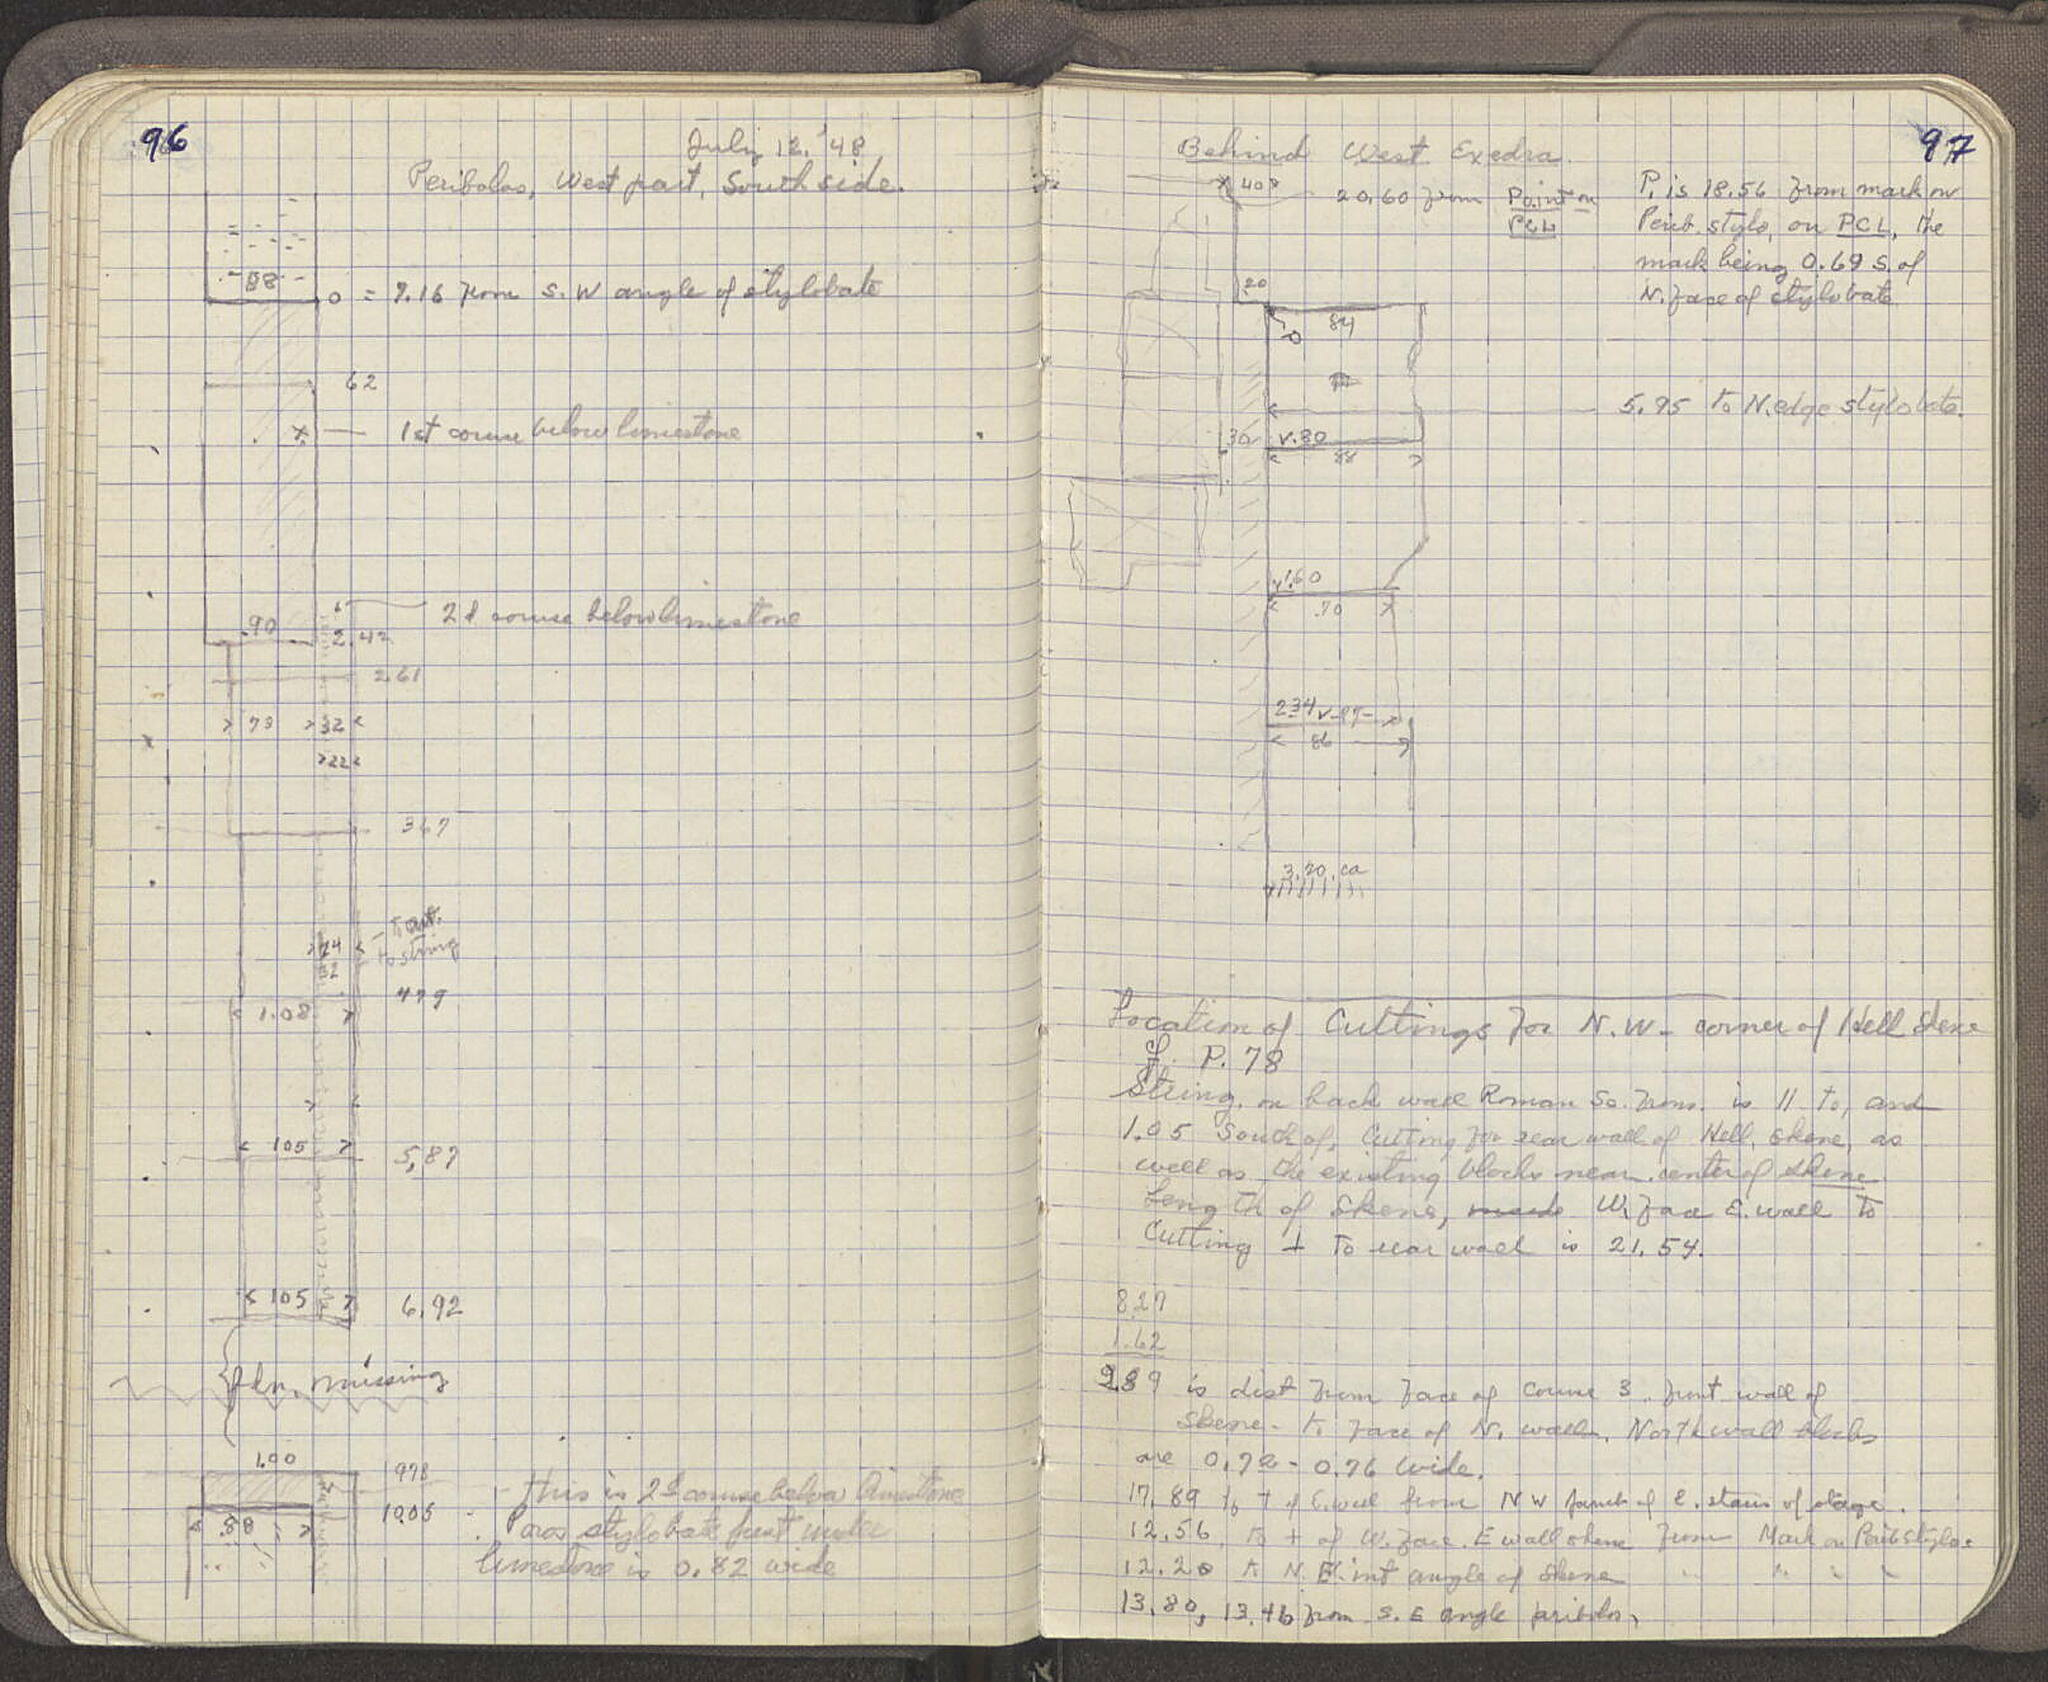 96
July 12, '48
Peribolos, West part, South side.
88
0 = 7.16 from S.W angle of stylobate
62
x — 1st course below limestone
.90
2.42
2d course below limestone
2.61
73 32
22
367
24
32
to string
479
1.08
105
5,87
105
6,92
fdn. missing
1.00
978
1005
.88
- This is 2d course below limestone
Poros stylobate just under
limestone is 0.82 wide
97
Behind West Exedra.
40
20.60 from Point on
PCL
P. is 18.56 from mark on
Perib. stylo, on PCL, the
mark being 0.69 S. of
N. face of stylobate
20
0
84
5.95 to N. edge stylobate.
30
v.80
88
1.60
.70
234
86
3.20 ca
Location of Cuttings for N.W. corner of Hell Skene
cf. P. 78
String on back wall Roman Sc. Frons. is 11 to, and
1.05 South of, Cutting for rear wall of Hell. skene, as
well as the existing blocks near center of skene
Length of Skene, W. face E. wall to
Cutting ⊥ to rear wall is 21.54.
827
1.62
989 is dist from face of course 3. front wall of
Skene - to face of N. wall. North wall blocks
are 0.72 - 0.76 wide.
17.89 to + of E. wall from N W of E. stairs of stage.
12.56, to + of W. face. E wall skene from Mark on Perib stylo.
12.20 to N. E. int angle of Skene " " " "
13.80, 13.46 from S. E angle peribolos,